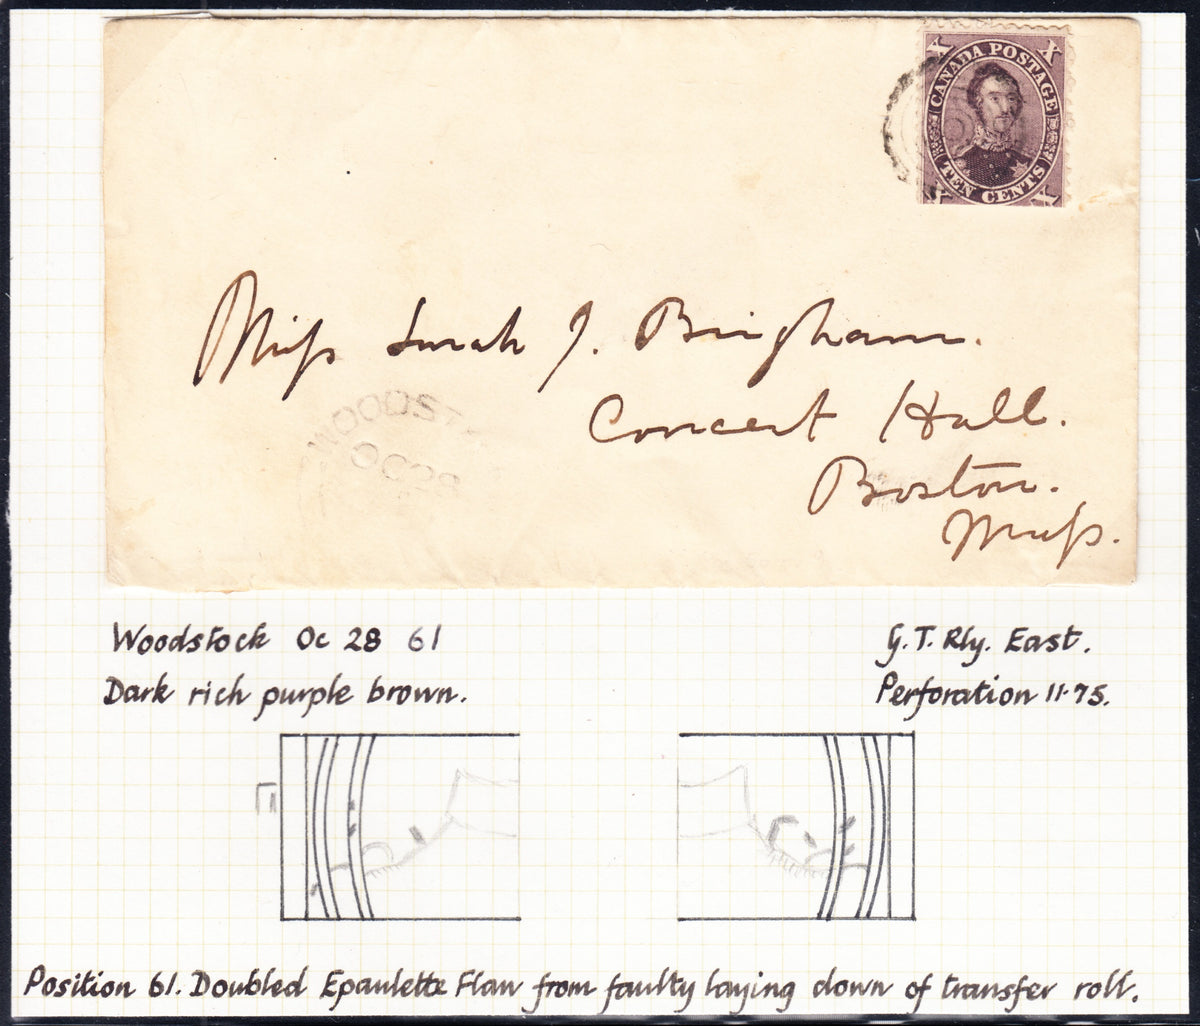 X CANADA POSTAGE X
X TEN CENTS X
Miss Sarah J. Bingham.
Concert Hall.
Boston.
Mass.
WOODST
OC 28
Woodstock Oc 28 61
G. T. Rly. East.
Dark rich purple brown.
Perforation 11·75.
Position 61. Doubled Epaulette Flaw from faulty laying down of transfer roll.